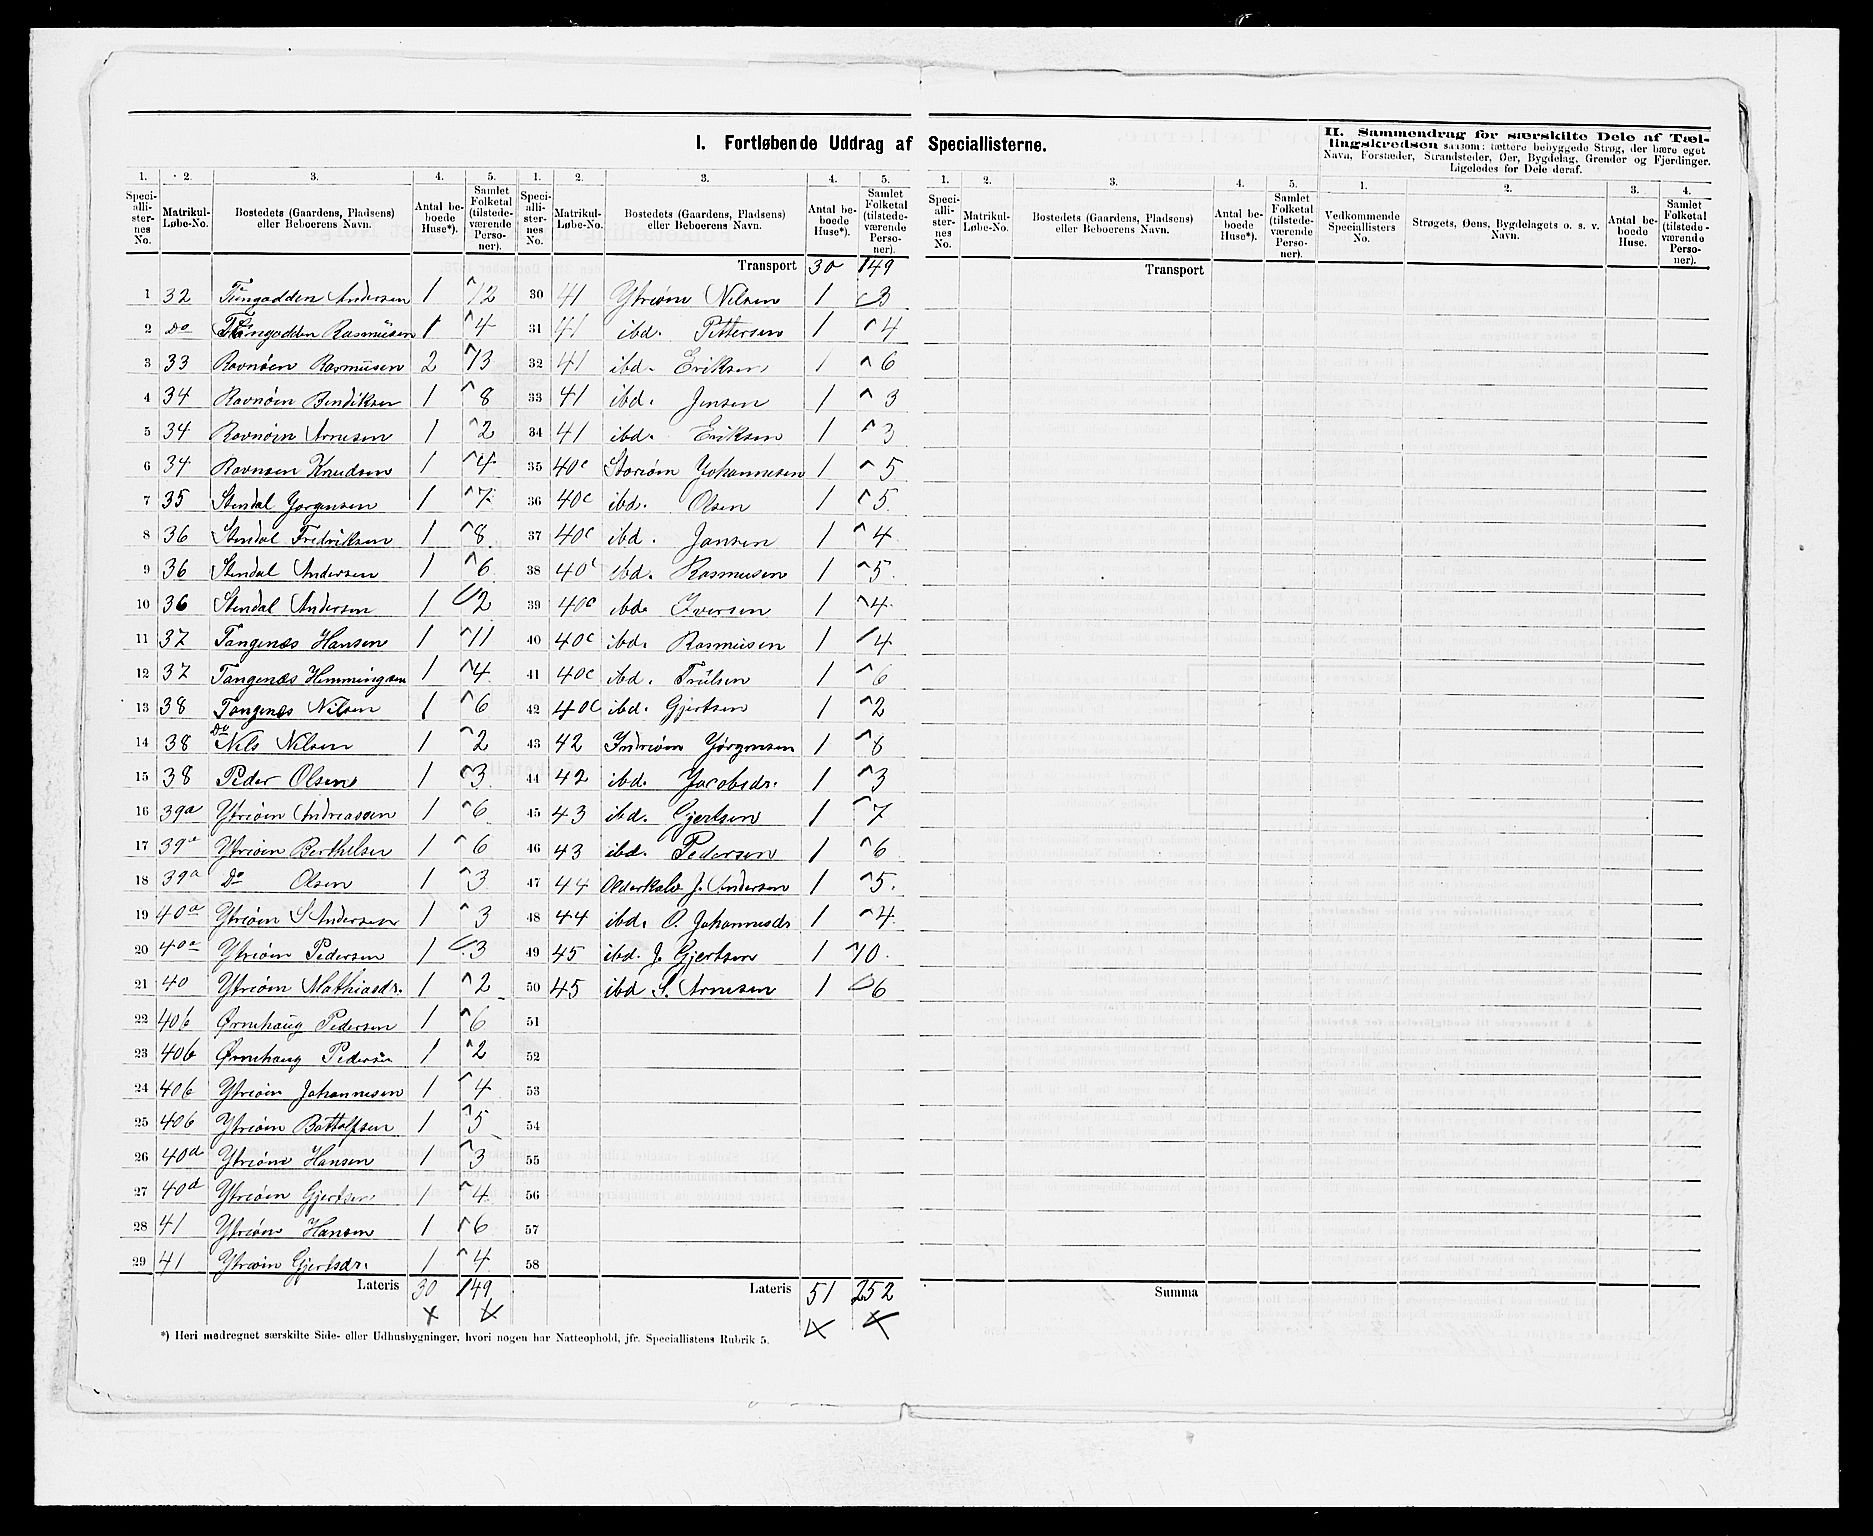 I. Fortløbende Uddrag af Speciallisterne.
II. Sammendrag for særskilte Dele af Tæl-
lingskredsen saasom: tættere bebyggede Strøg, der bære eget
Navn, Forstæder, Strandsteder, Øer, Bygdelag, Grender og Fjerdinger.
Ligeledes for Dele deraf.
1. 2. 3. 4. 5. 1. 2. 3. 4. 5. 1. 2. 3. 4. 5. 1. 2. 3. 4.
Speciallisternes No. Matrikul-Løbe-No. Bostedets (Gaardens, Pladsens) eller Beboerens Navn. Antal beboede Huse*). Samlet Folketal (tilstedeværende Personer).
Speciallisternes No. Matrikul-Løbe-No. Bostedets (Gaardens, Pladsens) eller Beboerens Navn. Antal beboede Huse*). Samlet Folketal (tilstedeværende Personer).
Speciallisternes No. Matrikul-Løbe-No. Bostedets (Gaardens, Pladsens) eller Beboerens Navn. Antal beboede Huse*). Samlet Folketal (tilstedeværende Personer).
Vedkommende Speciallisters No. Strøgets, Øens, Bygdelagets o. s. v. Navn. Antal beboede Huse. Samlet Folketal (tilstedeværende Personer).
1 32 Tungodden Andersen 1 12
2 Do Tungodden Rasmüsen 1 4
3 33 Ravnøen Rasmüsen 2 13
4 34 Ravnøen Bendiksen 1 8
5 34 Ravnøen Arnesen 1 2
6 34 Ravnøen Knudsen 1 4
7 35 Stendal Jorgensen 1 7
8 36 Stendal Fredriksen 1 8
9 36 Stendal Andersen 1 6
10 36 Stendal Andersen 1 2
11 37 Tangenæs Hansen 1 11
12 37 Tangenæs Hemmingsen 1 4
13 38 Tangenæs Nilsen 1 6
14 38 Do Nils Nilsen 1 2
15 38 Peder Olsen 1 3
16 39a Ytreøen Andreassen 1 6
17 39a Ytreøen Berthelsen 1 6
18 39a Do Olsen 1 3
19 40a Ytreøen S Andersen 1 3
20 40a Ytreøen Pedersen 1 3
21 40 Ytreøen Mathiasdr. 1 2
22 40b Ørnehaug Pedersen 1 6
23 40b Ørnehaug Pedersen 1 2
24 40b Ytreøen Johannesen 1 4
25 40b Ytreøen Bottolfsen 1 5
26 40d Ytreøen Hansen 1 3
27 40d Ytreøen Gjertsen 1 4
28 41 Ytreøen Hansen 1 6
29 41 Ytreøen Gjertsdr. 1 4
Lateris 30 149
Transport 30 149
30 41 Ytreøen Nilsen 1 3
31 41 ibd. Pettersen 1 4
32 41 ibd. Eriksen 1 6
33 41 ibd. Jensen 1 3
34 41 ibd. Eriksen 1 3
35 40c Storeøen Johannesen 1 5
36 40c ibd. Olsen 1 5
37 40c ibd. Jansen 1 4
38 40c ibd. Rasmusen 1 5
39 40c ibd. Iversen 1 4
40 40c ibd. Rasmüsen 1 4
41 40c ibd. Trülsen 1 6
42 40c ibd. Gjertsen 1 2
43 42 Indreøen Jørgensen 1 8
44 42 ibd. Jacobsdr. 1 3
45 43 ibd. Gjertsen 1 7
46 43 ibd. Pedersen 1 6
47 44 J. Andersen 1 5
48 44 ibd. O. Johannesdr 1 4
49 45 ibd. J. Gjertsen 1 10
50 45 ibd S. Arnesen 1 6
51
52
53
54
55
56
57
58
Lateris 51 252
Transport
Summa
*) Heri medregnet særskilte Side- eller Udhusbygninger, hvori nogen har Natteophold, jfr. Speciallistens Rubrik 5.